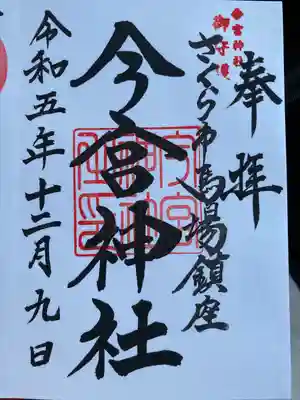 奉拝
今宮神社
御子護
さくら市馬場鎮座
今宮神社
令和五年十二月九日